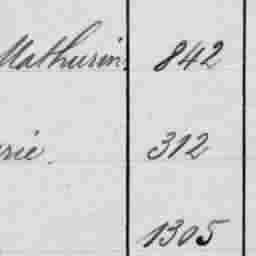 Mathurin. 842
rie. 312
1305